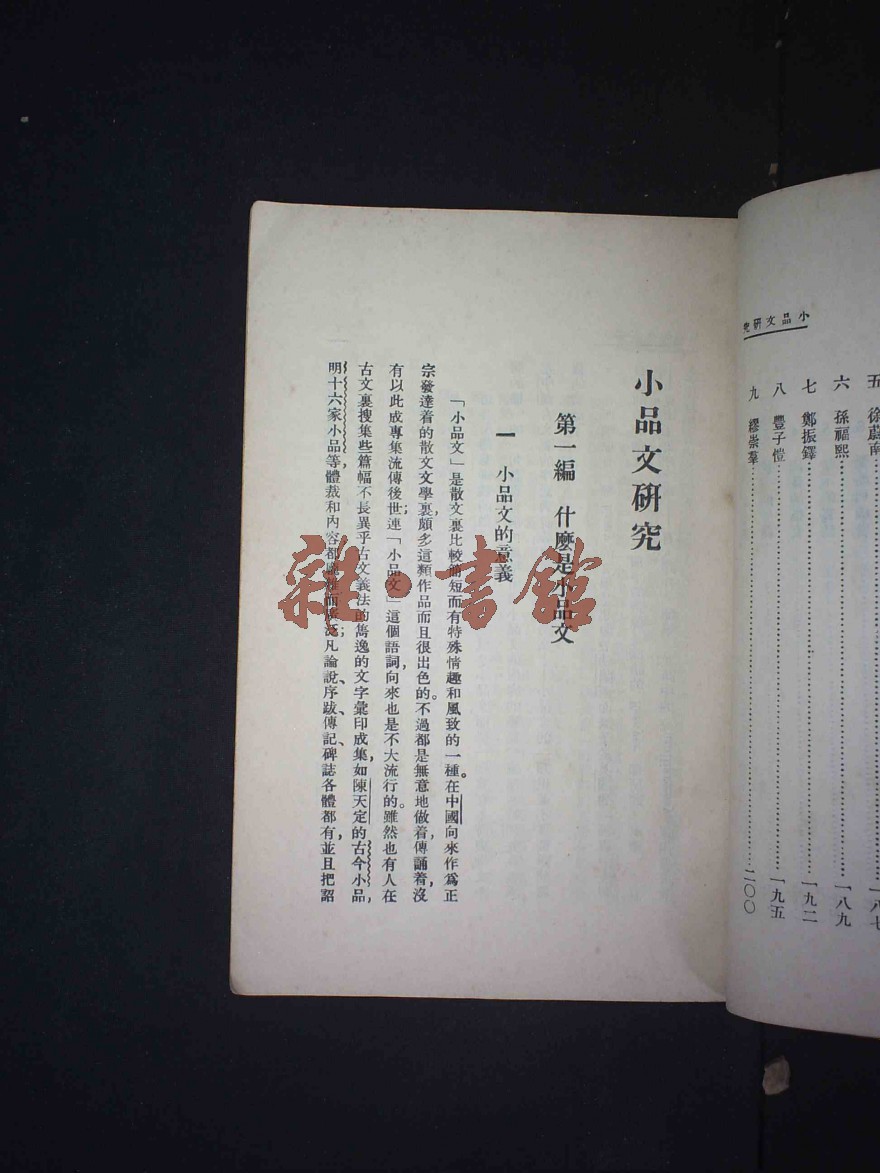 小品文研究
五 徐蔚南 一八七
六 孫福熙 一八九
七 鄭振鐸 一九二
八 豐子愷 一九五
九 繆崇羣 二〇〇
小品文研究
第一編 什麼是小品文
一 小品文的意義
「小品文」是散文裏比較簡短而有特殊情趣和風致的一種。在中國向來作爲正
宗發達着的散文文學裏，頗多這類作品而且很出色的。不過都是無意地做着，傳誦着，沒
有以此成專集流傳後世；連「小品文」這個語詞，向來也是不大流行的。雖然也有人在
古文裏搜集些篇幅不長異乎古文義法的雋逸的文字彙印成集，如陳天定的古今小品，
明十六家小品等，體裁和內容都龐雜而廣泛；凡論說、序跋、傳記、碑誌各體都有，並且把詔
雜·書館